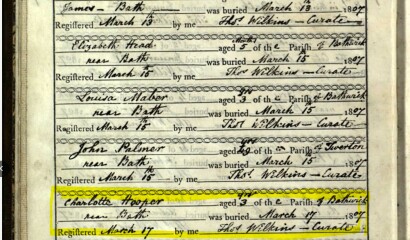 James – Bath was buried March 13 1807
Registered March 13 by me Thos Wilkins – Curate
Elizabeth Head aged 5 of the Parish of Bathwick
near Bath was buried March 15th 1807.
Registered March 15th by me Thos Wilkins – Curate
Louisa Mabor aged 3 yrs of the Parish of Bathwick
near Bath was buried March 15 1807.
Registered March 15 by me Thos Wilkins – Curate
John Palmer aged of the Parish of Twerton
near Bath was buried March 15 1807.
Registered March 15th by me Thos Wilkins – Curate
Charlotte Hooper aged 3 yrs of the Parish of Bathwick
near Bath was buried March 17 1807.
Registered March 17 by me Thos Wilkins – Curate